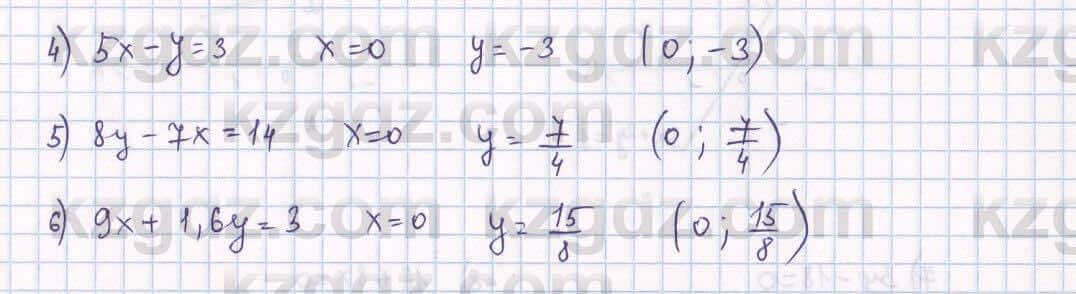 4) 5x - y = 3 x = 0 y = -3 (0; -3)
5) 8y - 7x = 14 x = 0 y = 7/4 (0; 7/4)
6) 9x + 1,6y = 3 x = 0 y = 15/8 (0; 15/8)
kzgdz.com